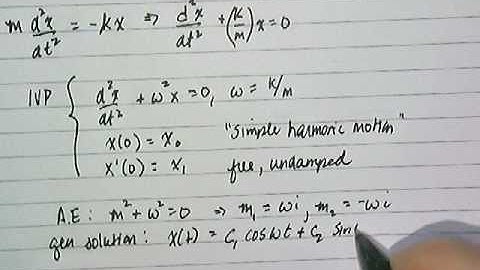 m d²x/dt² = -kx ⇒ d²x/dt² + (k/m)x = 0
IVP { d²x/dt² + ω²x = 0, ω = k/m
x(0) = x₀ "simple harmonic motion"
x'(0) = x₁ free, undamped
A.E: m² + ω² = 0 ⇒ m₁ = ωi, m₂ = -ωi
gen solution: x(t) = C₁ cosωt + C₂ sin